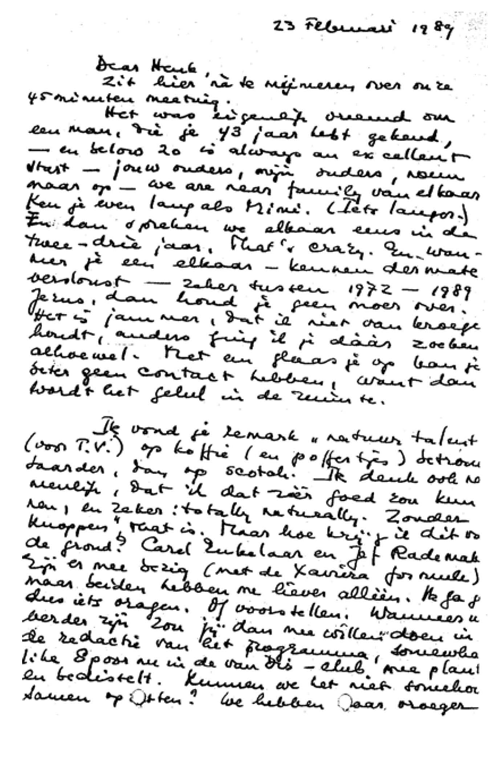 23 Februari 1989
Dear Henk,
Zit hier nà te mijmeren over onze
45 minuten meeting.
Het was eigenlijk vreemd om
een man, die je 43 jaar hebt gekend,
— en below 20 is always an excellent
start — jouw ouders, mijn ouders, noem
maar op — we are near family van elkaar
Ken je even lang als Mimi. (Iets langer.)
En dan spreken we elkaar eens in de
twee-drie jaar. That's crazy. En wan-
neer je een elkaar — kennen dermate
verslonst — zeker tussen 1972 — 1989
Jezus, dan houd je geen moer over.
Het is jammer, dat je niet van kroege
houdt, anders ging ik je dáár zoeken
alhoewel. Met een glaasje op kan je
beter geen contact hebben, want dan
wordt het gelul in de ruimte.
Ik vond je remark „natuur talent
(voor T.V.) op koffie (en poffertjes) betrouw
baarder, dan op scotch. Ik denk ook na
menlijk, dat ik dat zéér goed zou kun
nen, en zeker: totally naturally. Zonder
knoppen, that is. Maar hoe krijg ik dit v
de grond? Carel Enkelaar en Jef Rademak
zijn er mee bezig (met de Xaviera formule)
maar beiden hebben me liever alléén. Ik ga j
dus iets vragen. Of voorstellen. Wanneer w
verder zijn zou jij dan mee willen doen in
de redactie van het programma, somewha
like 8 poor nu in de van Dis-club mee plant
en bedistelt. Kunnen we het niet somehow
samen op Otten? We hebben Daar vroeger